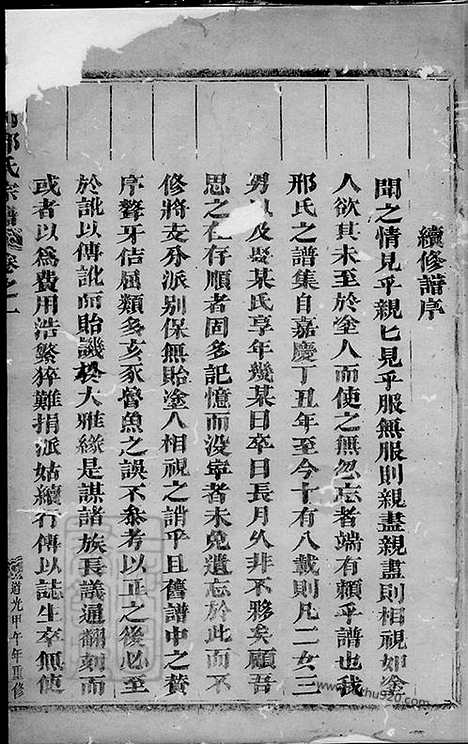 續修譜序
聞之情見乎親匕見乎服無服則親盡親盡則相視如塗
人欲其未至於塗人而使之無忽忘者端有賴乎譜也我
邢氏之譜集自嘉慶丁丑年至今十有八載則凡二女三
男以及娶某氏享年幾某日卒日長月久非不夥矣顧吾
思之在存順者固多記憶而沒寧者未免遺忘於此而不
修將支分派别保無貽塗人相視之誚乎且舊譜中之贊
序聱牙佶屈類多亥豕魯魚之誤不叅考以正之後必至
於訛以傳訛而貽譏於大雅緣是謀諸族長議通翻刻而
或者以為費用浩繁猝難捐派姑續行傳以誌生卒無使
邢氏宗譜 卷之一
道光甲午年重修
shu920.com